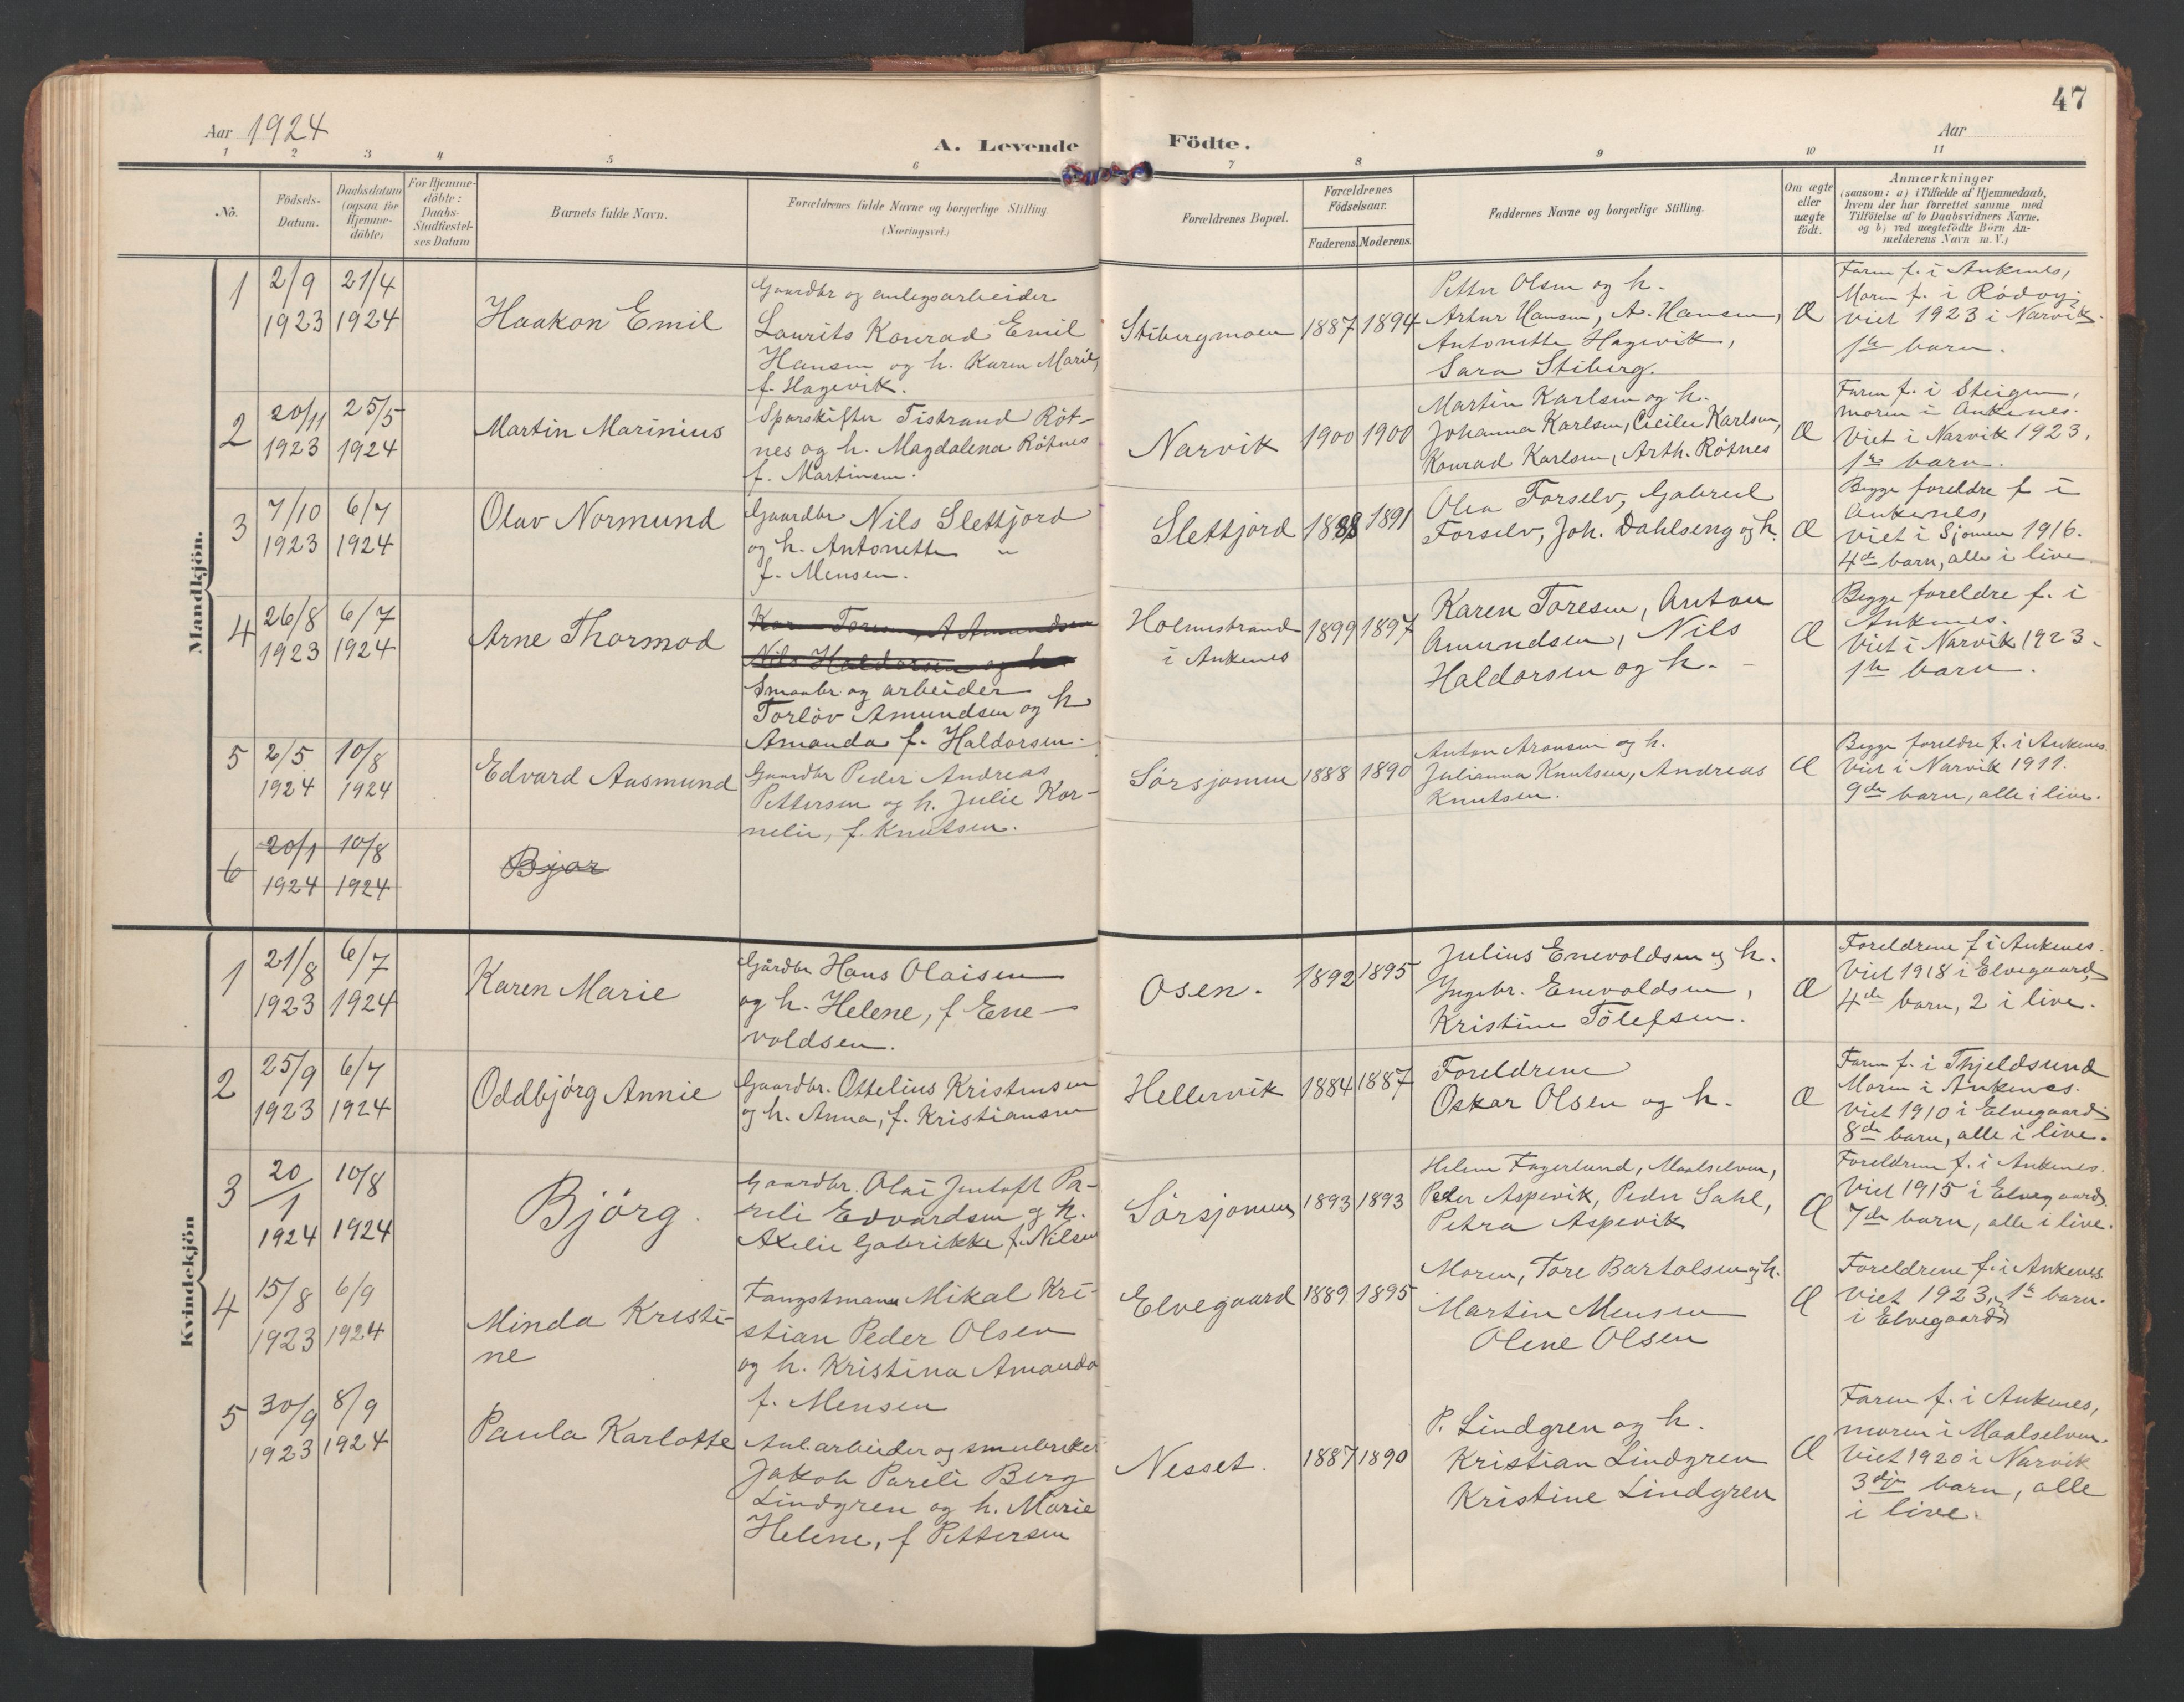 47
Aar 1924
A. Levende
Födte.
Aar
1 2 3 4 5 6 7 8 9 10 11
No.
Födsels-
Datum.
Daabsdatum
(ogsaa for
Hjemme-
döbte)
For Hjemme-
döbte:
Daabs-
Stadfæstel-
ses Datum
Barnets fulde Navn.
Forældrenes fulde Navne og borgerlige Stilling.
(Næringsvei.)
Forældrenes Bopæl.
Forældrenes
Födselsaar.
Faderens. Moderens.
Faddernes Navne og borgerlige Stilling.
Om ægte
eller
uægte
født.
Anmærkninger
(saasom: a) i Tilfælde af Hjemmedaab,
hvem der har forrettet samme med
Tilföielse af to Daabsvidners Navne.
og b) ved uægtefödte Börn An-
melderens Navn m. V.)
Mandkjön.
1
2/9
1923
21/4
1924
Haakon Emil
Gaardbr og anlegsarbeider
Laurits Konrad Emil
Hansen og h. Karen Marie,
f. Hagevik.
Stibergmoen
1887
1894
Petter Olsen og h.
Artur Hansen, A. Hansen,
Antonette Hagevik,
Sara Stiberg.
Æ
Faren f. i Ankenes,
Moren f. i Rödøy;
viet 1923 i Narvik.
1te barn.
2
20/11
1923
25/5
1924
Martin Marinius
Sporskifter Tistrand Røt-
nes og h. Magdalena Røtnes
f. Martinsen.
Narvik
1900
1900
Martin Karlsen og h.
Johanna Karlsen, Cecilie Karlsen,
Konrad Karlsen, Arth. Røtnes
Æ
Faren f. i Steigen,
moren i Ankenes.
Viet i Narvik 1923.
1te barn.
3
7/10
1923
6/7
1924
Olav Normund
Gaardbr Nils Slettjord
og h. Antonette "
f. Mensen.
Slettjord
1888
1891
Olea Forselv, Gabriel
Forselv, Joh. Dahlseng og h.
Æ
Begge foreldre f i
Ankenes,
viet i Sjomen 1916.
4de barn, alle i live
4
26/8
1923
6/7
1924
Arne Thormod
Nils Haldorsen og h
Smaabr. og arbeider
Torlöv Amundsen og h
Amanda f. Haldorsen.
Holmstrand
i Ankenes
1899
1897
Karen Toresen, Anton
Amundsen, Nils
Haldorsen og h.
Æ
Begge foreldre f. i
Ankenes.
Viet i Narvik 1923.
1te barn.
5
2/5
1924
10/8
1924
Edvard Aasmund
Gaardbr Peder Andreas
Pettersen og h. Julie Kor-
nelie, f. Knutsen.
Sörsjomen
1888
1890
Anton Aronsen og h.
Julianna Knutsen, Andreas
Knutsen.
Æ
Begge foreldre f. i Ankenes.
Viet i Narvik 1911.
9de barn, alle i live.
6
20/1
1924
10/8
1924
Bjør
Kvindekjön
1
21/8
1923
6/7
1924
Karen Marie
Gårdbr Hans Olaisen
og h. Helene, f Ene-
voldsen.
Osen.
1892
1895
Julius Enevoldsen og h.
Ingebr. Enevoldsen,
Kristine Tölefsen.
Æ
Foreldrene f i Ankenes.
Viet 1918 i Elvegaard,
4de barn, 2 i live.
2
25/9
1923
6/7
1924
Oddbjörg Annie
Gaardbr. Ottelius Kristensen
og h. Anna, f. Kristiansen
Hellervik
1884
1887
Foreldrene
Oskar Olsen og h.
Æ
Faren f. i Thjeldsund
Moren i Ankenes.
Viet 1910 i Elvegaard.
8de barn, alle i live.
3
20/1
1924
10/8
1924
Björg.
Gaardbr. Olai Jentoft Pa-
reli Edvardsen og h.
Axelie Gabrikke f. Nilsen
Sörsjomen
1893
1893
Helene Fagerlund, Maalselven,
Peder Aspevik, Peder Sahl,
Petra Aspevik
Æ
Foreldrene f. i Ankenes.
Viet 1915 i Elvegaard.
7de barn, alle i live.
4
15/8
1923
6/9
1924
Minda Kristi-
ne
Fangstmann Mikal Kri-
stian Peder Olsen
og h. Kristina Amanda
f. Mensen
Elvegaard
1889
1895
Moren, Tore Bartolsen og h.
Martin Mensen
Olene Olsen
Æ
Foreldrene f. i Ankenes
Viet 1923, 1te barn.
i Elvegaard
5
30/9
1923
8/9
1924
Paula Karlotte
Anl.arbeider og smaabruker
Jakob Pareli Berg
Lindgren og h. Marie
Helene, f Pettersen
Nesset.
1887
1890
P. Lindgren og h.
Kristian Lindgren
Kristine Lindgren
Æ
Faren f. i Ankenes,
moren i Maalselven.
Viet 1920 i Narvik
3dje barn, alle
i live.